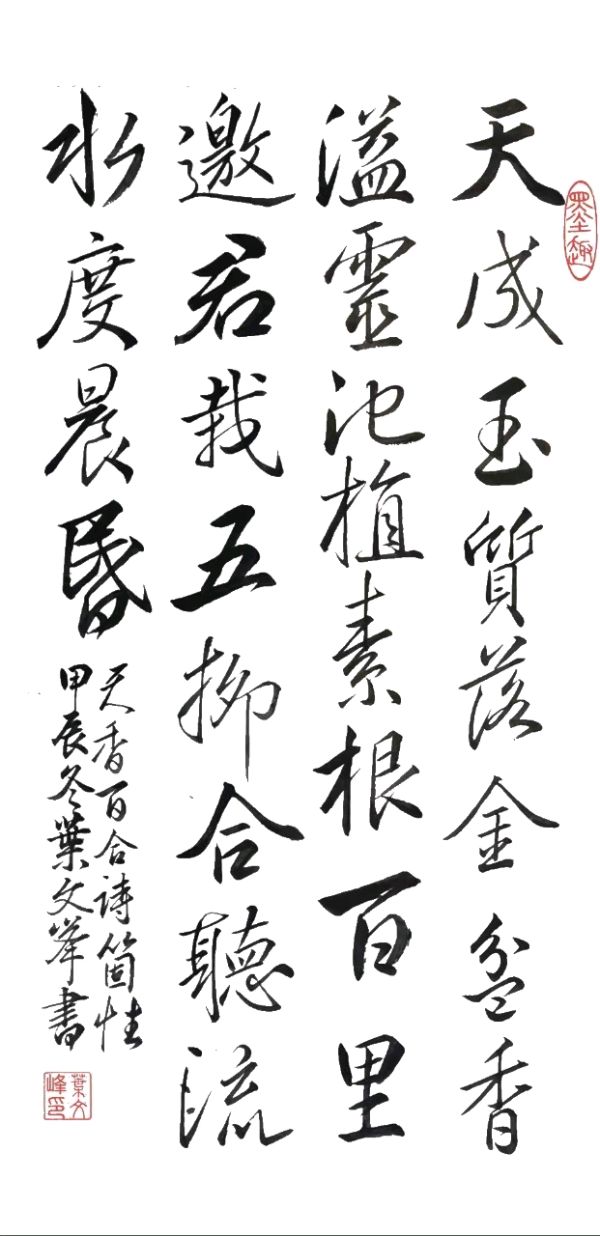 墨趣
天成玉質落金盆香
溢靈池植素根百里
邀君栽五柳合聽流
水度晨昏
天香百合詩箇性
甲辰冬葉文峯書
葉文
峰印